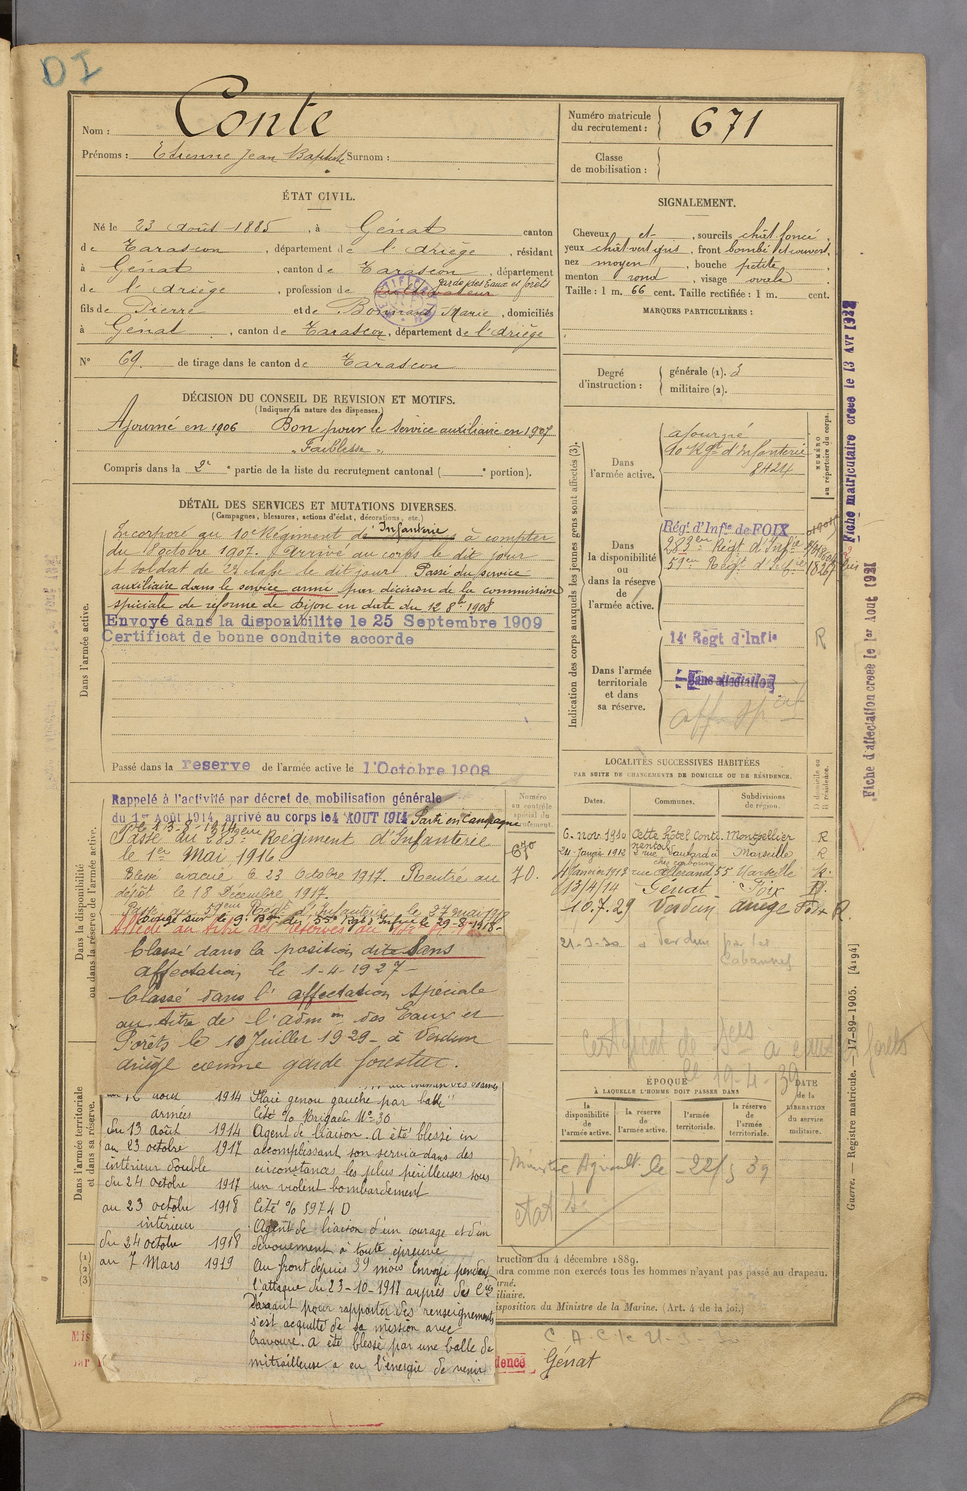 DI
Nom : Conte
Prénoms : Etienne Jean Baptiste Surnom :
Numéro matricule du recrutement : 671
Classe de mobilisation :
ÉTAT CIVIL.
Né le 23 Août 1885, à Génat canton
de Tarascon, département de l'Ariège, résidant
à Génat, canton de Tarascon, département
garde des Eaux et forêts
de l'Ariège, profession de cultivateur
fils de Pierre et de Marie, domiciliés
à Génat, canton de Tarascon, département de l'Ariège
N° 69 de tirage dans le canton de Tarascon
SIGNALEMENT.
Cheveux et , sourcils chât foncé,
yeux chât vert gris, front bombé et ouvert,
nez moyen, bouche petite,
menton rond, visage ovale
Taille : 1 m. 66 cent. Taille rectifiée : 1 m. cent.
MARQUES PARTICULIÈRES :
Degré d'instruction :
générale (1). 3
militaire (2).
DÉCISION DU CONSEIL DE REVISION ET MOTIFS.
(Indiquer la nature des dispenses.)
Ajourné en 1906 Bon pour le service auxiliaire en 1907
"Faiblesse"
Compris dans la 2e partie de la liste du recrutement cantonal ( portion).
DÉTAIL DES SERVICES ET MUTATIONS DIVERSES.
(Campagnes, blessures, actions d'éclat, décorations, etc.)
Dans l'armée active.
Incorporé au 10e Régiment d'Infanterie à compter
du 8 octobre 1907. Arrivé au corps le dit jour
et soldat de 2e classe le dit jour. Passé du service
auxiliaire dans le service armé par décision de la commission
spéciale de réforme de Dijon en date du 12 8bre 1908
Envoyé dans la disponibilite le 25 Septembre 1909
Certificat de bonne conduite accorde
Passé dans la reserve de l'armée active le 1 Octobre 1908
Indication des corps auxquels les jeunes gens sont affectés (3).
NUMÉRO au répertoire du corps.
Dans l'armée active.
ajourné
10e Rgt d'Infanterie
8424
Dans la disponibilité ou dans la réserve de l'armée active.
Régt d'Infie de FOIX
283eme Régt d'Infie
59eme Régt d'Infie
Dans l'armée territoriale et dans sa réserve.
14e Regt d'Infie R
Sans affectation
Fiche matriculaire créée le 13 Avr 1922
Fiche d'affectation creée le 1er Aout 1921
LOCALITÉS SUCCESSIVES HABITÉES
PAR SUITE DE CHANGEMENTS DE DOMICILE OU DE RÉSIDENCE.
Dates. Communes. Subdivisions de région. D domicile ou R résidence.
6 nov. 1910 Cette hôtel Conte Montpellier R
24 Janvier 1912 Marseille R
Janvier 1913 rue 55 Marseille R.
13/4/14 Génat Foix D.
10.7.29 Verdun Ariège Foix R
21-3-30 à Verdun par les Cabannes
Dans la disponibilité ou dans la réserve de l'armée active.
Numéro au contrôle spécial du recrutement.
670
70.
Rappelé à l'activité par décret de mobilisation générale
du 1er Août 1914, arrivé au corps le 4 AOUT 1914 Parti en Campagne
le 13-8-1914
Passé au 283eme Régiment d'Infanterie
le 1er Mai 1916
Blessé évacué le 23 Octobre 1917. Rentré au
dépôt le 18 Décembre 1917.
Classé dans la position dite sans
affectation, le 1-4-1927-
Classé dans l'affectation spéciale
au titre de l'admon des Eaux et
Forêts le 10 Juillet 1929 - à Verdun
Ariège comme garde forestier.
Certificat de à eaux forêts
le 19-4-39
ÉPOQUE
À LAQUELLE L'HOMME DOIT PASSER DANS
la disponibilité de l'armée active. la réserve de l'armée active. l'armée territoriale. la réserve de l'armée territoriale.
DATE de la LIBÉRATION du service militaire.
Dans l'armée territoriale et dans sa réserve.
août 1914 Plaie genou gauche par balle"
armées Cité % Brigade No 30
du 13 Août 1914 Agent de liaison. A été blessé en
au 23 octobre 1917 accomplissant son service dans des
intérieur double circonstances les plus périlleuses sous
du 24 octobre 1917 un violent bombardement
au 23 octobre 1918 Cité % 5974 D
intérieur Agent de liaison d'un courage et d'un
du 24 octobre 1918 dévouement à toute épreuve
au 7 Mars 1919 Au front depuis 39 mois Envoyé pendant
l'attaque du 23-10-1917 auprès des Cies
d'assaut pour rapporter des renseignements
s'est acquitté de sa mission avec
bravoure. A été blessé par une balle de
mitrailleuse a eu l'énergie de venir
(1)
(2)
(3)
truction du 4 décembre 1889.
dra comme non exercés tous les hommes n'ayant pas passé au drapeau.
urné.
iliaire.
isposition du Ministre de la Marine. (Art. 4 de la loi.)
dence
Génat
Guerre. — Registre matricule. — 17-89-1905. [4194]